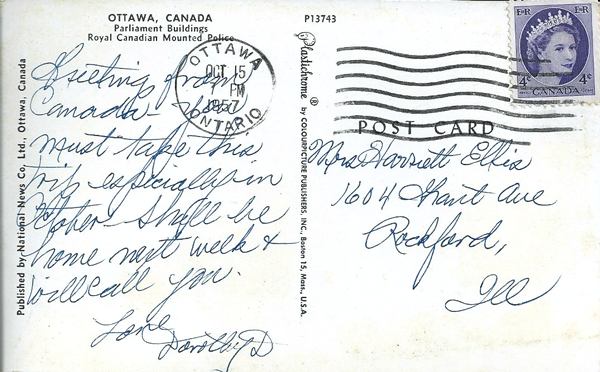 OTTAWA, CANADA
Parliament Buildings
Royal Canadian Mounted Police
Greeting from
Canada - You
must take this
trip especially in
October - Shall be
home next week &
will call you.
Love
Dorothy D
Published by National News Co., Ltd., Ottawa, Canada
P13743
Plastichrome ® by COLOURPICTURE PUBLISHERS, INC., Boston 15, Mass., U.S.A.
OTTAWA
OCT 15
PM
1957
ONTARIO
E II R E II R
4¢ 4¢
CANADA
POST CARD
Mrs Harriett Ellis
1604 Grant Ave
Rockford,
Ill